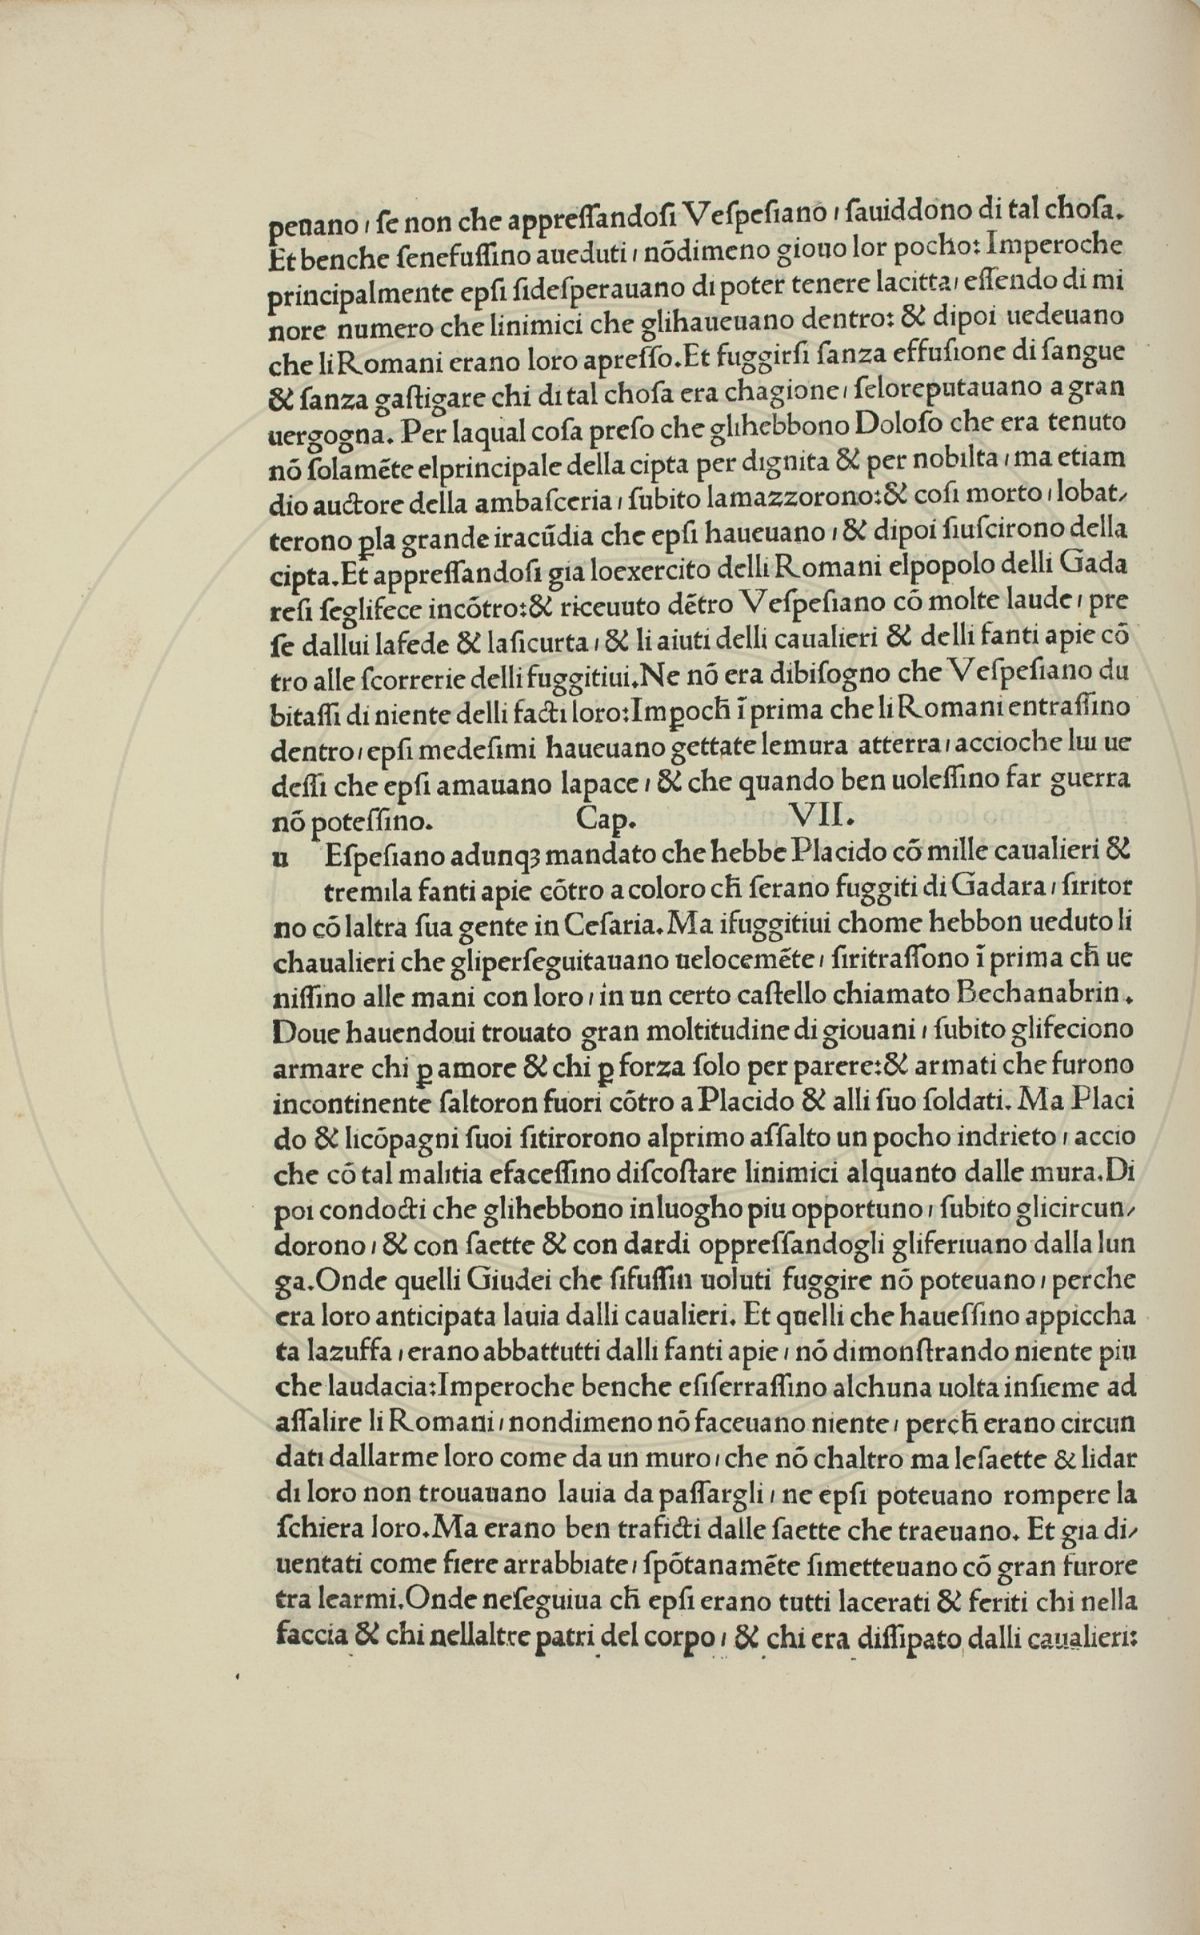 penano, ſe non che appreſſandoſi Veſpeſiano, ſauiddono di tal choſa.
Et benche ſenefuſſino aueduti, nõdimeno giouo lor pocho: Imperoche
principalmente epſi ſideſperauano di poter tenere lacitta, eſſendo di mi
nore numero che linimici che glihaueuano dentro: & dipoi uedeuano
che li Romani erano loro apreſſo.Et fuggirſi ſanza effuſione di ſangue
& ſanza gaſtigare chi di tal choſa era chagione, ſeloreputauano a gran
uergogna. Per laqual coſa preſo che glihebbono Doloſo che era tenuto
nõ ſolamẽte elprincipale della cipta per dignita & per nobilta, ma etiam
dio auctore della ambaſceria, ſubito lamazzorono:& coſi morto, lobat/
terono ꝑla grande iracũdia che epſi haueuano, & dipoi ſiuſcirono della
cipta.Et appreſſandoſi gia loexercito delli Romani elpopolo delli Gada
reſi ſeglifece incõtro:& riceuuto dẽtro Veſpeſiano cõ molte laude, pre
ſe dallui lafede & laſicurta, & li aiuti delli caualieri & delli fanti apie cõ
tro alle ſcorrerie delli fuggitiui.Ne nõ era dibiſogno che Veſpeſiano du
bitaſſi di niente delli facti loro:Imꝑoch̃ ĩ prima che li Romani entraſſino
dentro, epſi medeſimi haueuano gettate lemura atterra, accioche lui ue
deſſi che epſi amauano lapace, & che quando ben uoleſſino far guerra
nõ poteſſino. Cap. VII.
u Eſpeſiano adunqꝫ mandato che hebbe Placido cõ mille caualieri &
tremila fanti apie cõtro a coloro ch̃ ſerano fuggiti di Gadara, ſiritor
no cõ laltra ſua gente in Ceſaria.Ma ifuggitiui chome hebbon ueduto li
chaualieri che gliperſeguitauano uelocemẽte, ſiritraſſono ĩ prima ch̃ ue
niſſino alle mani con loro, in un certo caſtello chiamato Bechanabrin.
Doue hauendoui trouato gran moltitudine di giouani, ſubito glifeciono
armare chi ꝑ amore & chi ꝑ forza ſolo per parere:& armati che furono
incontinente ſaltoron fuori cõtro a Placido & alli ſuo ſoldati. Ma Placi
do & licõpagni ſuoi ſitirorono alprimo aſſalto un pocho indrieto, accio
che cõ tal malitia efaceſſino diſcoſtare linimici alquanto dalle mura.Di
poi condocti che glihebbono inluogho piu opportuno, ſubito glicircun/
dorono, & con ſaette & con dardi oppreſſandogli gliferiuano dalla lun
ga.Onde quelli Giudei che ſifuſſin uoluti fuggire nõ poteuano, perche
era loro anticipata lauia dalli caualieri. Et quelli che haueſſino appiccha
ta lazuffa, erano abbattutti dalli fanti apie, nõ dimonſtrando niente piu
che laudacia:Imperoche benche eſiſerraſſino alchuna uolta inſieme ad
aſſalire li Romani, nondimeno nõ faceuano niente, perch̃ erano circun
dati dallarme loro come da un muro, che nõ chaltro ma leſaette & lidar
di loro non trouauano lauia da paſſargli, ne epſi poteuano rompere la
ſchiera loro.Ma erano ben traficti dalle ſaette che traeuano. Et gia di/
uentati come fiere arrabbiate, ſpõtanamẽte ſimetteuano cõ gran furore
tra learmi.Onde neſeguiua ch̃ epſi erano tutti lacerati & feriti chi nella
faccia & chi nellaltre patri del corpo, & chi era diſſipato dalli caualieri: